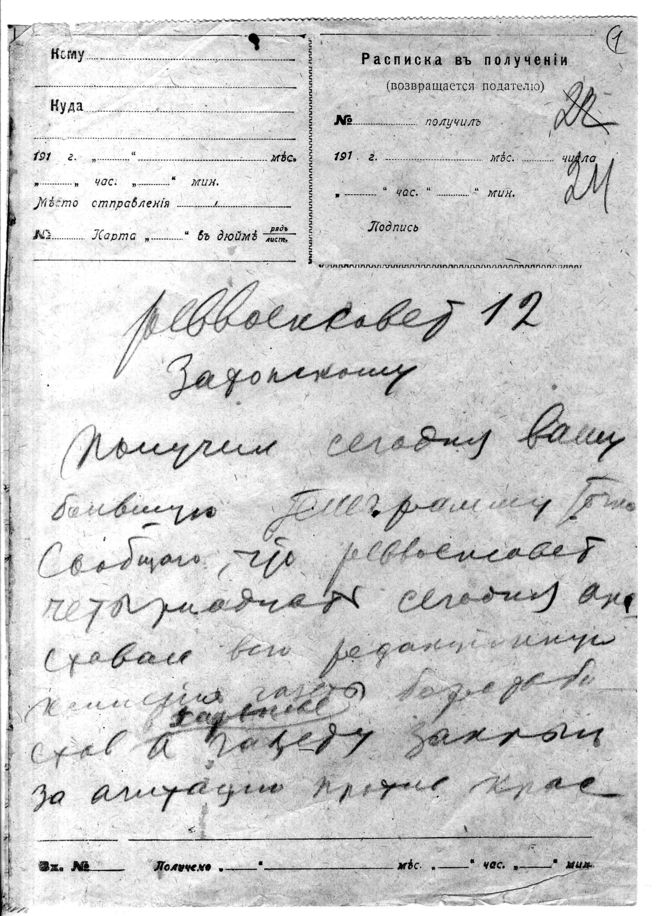 Кому
Куда
191 г. „ “ мѣс.
„ „ час. „ “ мин.
Мѣсто отправленія
№ Карта „ “ въ дюймѣ рядъ листъ.
1
Расписка въ полученіи
(возвращается подателю)
№ получилъ 22
191 г. мѣс. числа
24
„ “ час. “ “ мин.
Подпись
реввоенсовет 12
Затонскому
Получил сегодня вашу
телеграмму Точка
Сообщаю, что реввоенсовет
четырнадцать сегодня аре
стовал всю редакционную
газеты боротьби
стов а газету закрыл
за агитацию против Крас
Вх. № Получено „ “ мѣс. „ “ час. „ “ мин.